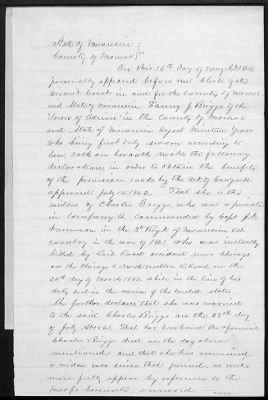 State of Missouri
County of Monroe } ss
On this 16th day of May A.D. 1864
personally appeared before me Clerk of the
Circuit Court in and for the County of Monroe
and State of Missouri Fanny J. Briggs of the
Town of in the County of Monroe
and State of Missouri aged Nineteen years
who being first duly sworn according to
law, doth on her oath make the following
declaration, in order to obtain the benefits
of the provision made by the Act of Congress
approved July 14 1862. That she is the
widow of Charles Briggs, who was a private
in Company commanded by Capt
in the 3d Regt of Vol
in the war of 1861, who was
killed by Rail Road accident near Chicago
on the Chicago & North Western R. Road, on the
20th day of March 1862, while in the line of his
duty and in the service of the United States
She further declares that she was married
to the said Charles Briggs on the 28th day
of July That her husband the aforesaid
Charles Briggs died on the day above
mentioned and that she has remained
a widow ever since that period, as will
more fully appear by reference to the
proofs hereunto annexed